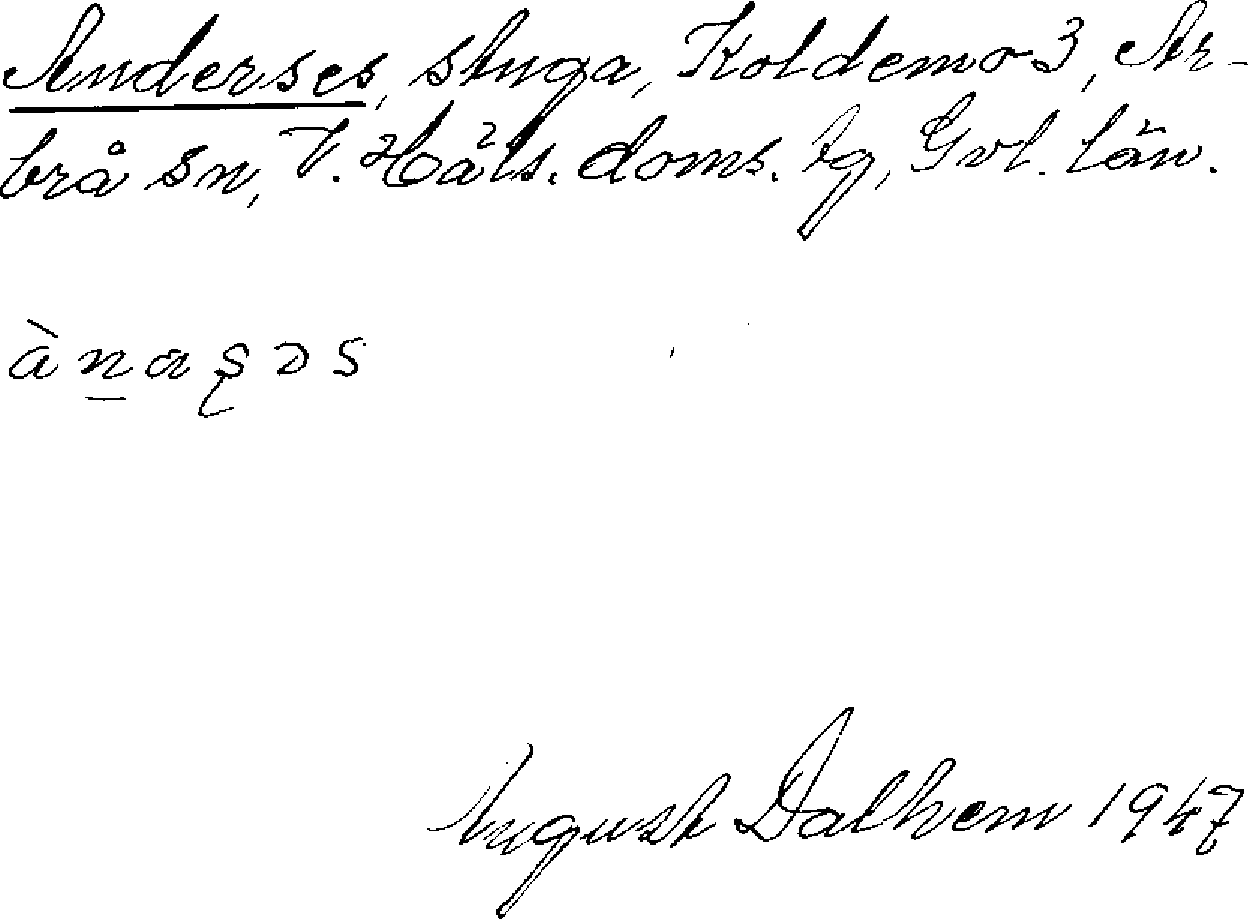 Anderses, stuga, Koldemo 3, Ar-
brå sn, V. Häls. doms. tg, Gvl. län.
ànaʂəs
August Dalhem 1947